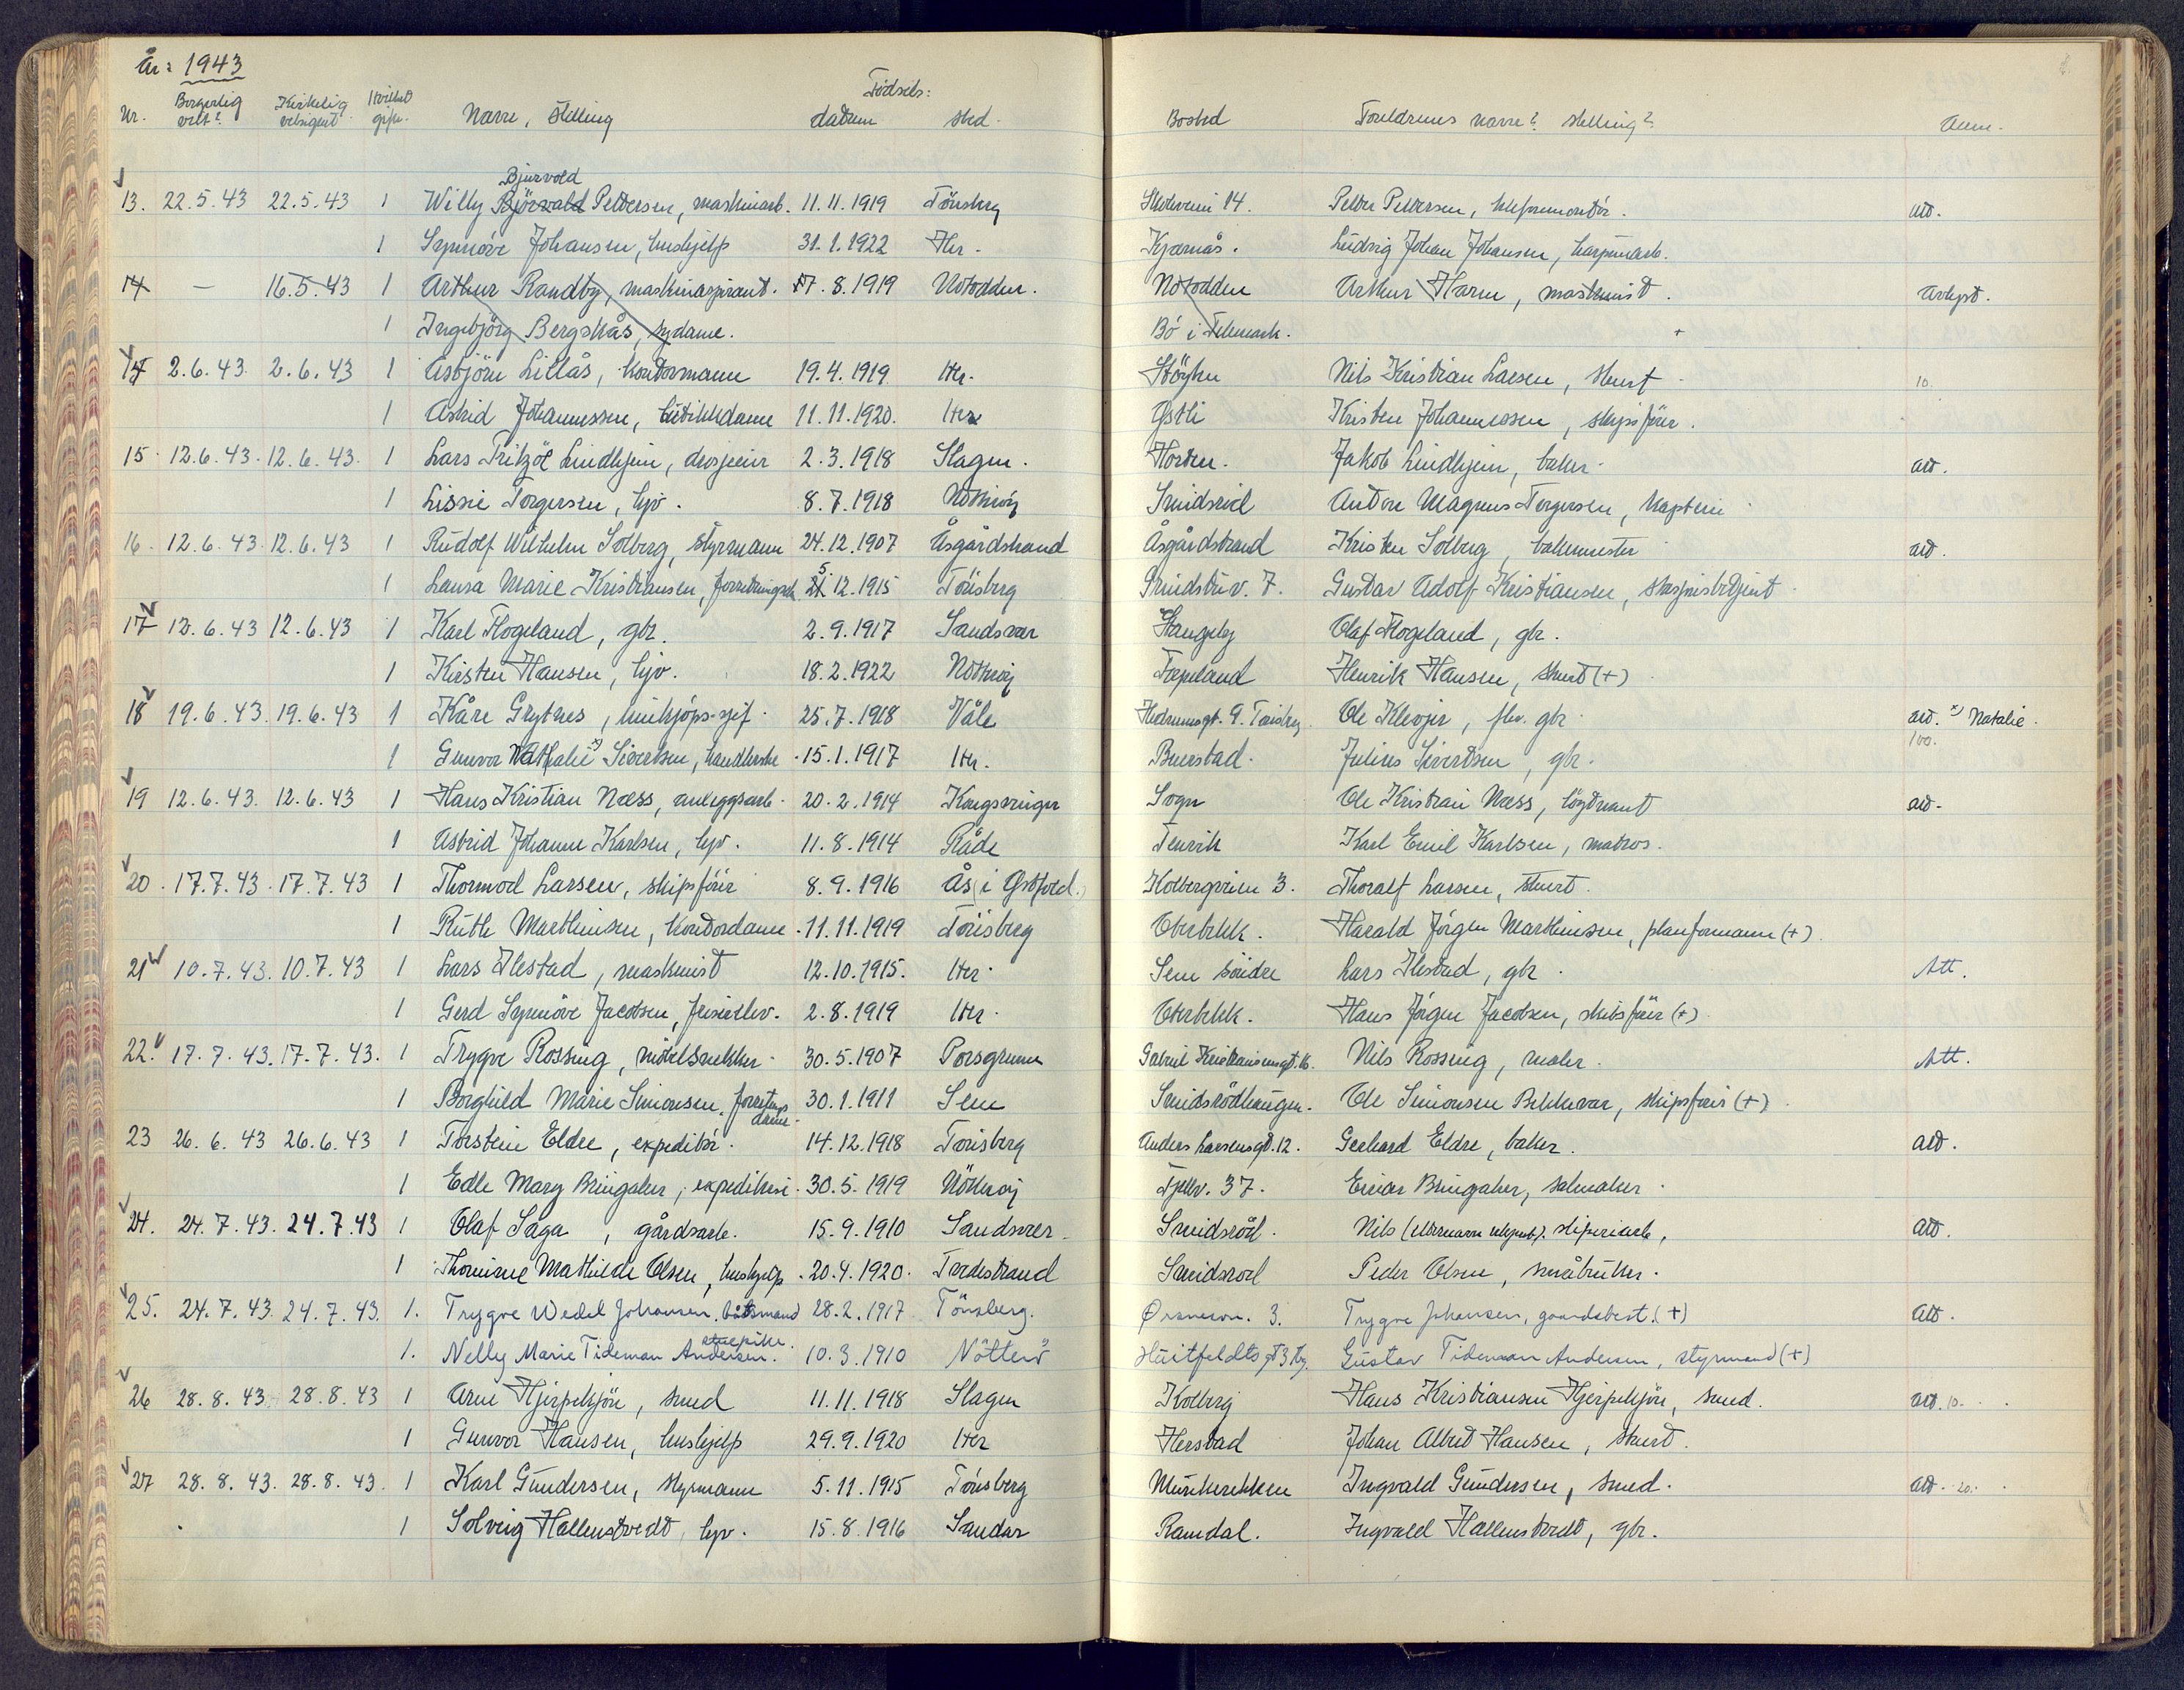 År: 1943
Nr. Borgerlig viet? Kirkelig velsignet Hvilket gift. Navn, stilling Fødsels: datum sted. Bosted Foreldrenes navn? stilling? Anm.
Bjurvold
13. 22.5.43 22.5.43 1 Willy Björvald Pettersen, maskinarb. 11.11.1919 Tönsberg 14. Petter Pettersen, att.
1 Synnöve Johansen, hushjelp 31.1.1922 Her. Kjærnås. Ludvig Johan Johansen,
14 – 16.5.43 1 Arthur Randby, maskinaspirant. 17.8.1919 Notodden. Notodden Arthur Harm, maskinist. Avlyst.
1 Ingebjörg Bergskås, sydame. Bö i Telemark.
14 2.6.43. 2.6.43 1 Asbjörn Lillås, kontormann 19.4.1919 Her. Nils Kristian Larsen, stuert 10.
1 Astrid Johannessen, butikkdame 11.11.1920. Her Østli Kristen Johannessen, skipsförer.
15. 12.6.43. 12.6.43. 1 Lars Fritzöe Lindhjem, 2.3.1918 Slagen. Horten. Jakob Lindhjem, baker. att.
1 Lissie Torgersen, hjv. 8.7.1918 Nötteröy Smidsröd Anton Magnus Torgersen, kaptein
16. 12.6.43. 12.6.43 1 Rudolf Wilhelm Solberg, styrmann 24.12.1907 Åsgårdstrand Åsgårdstrand Kristen Solberg, bakermester att.
1 Laura Marie Kristiansen, 5.12.1915 Tönsberg 7. Gustav Adolf Kristiansen,
17 12.6.43 12.6.43 1 Karl Flogeland, gbr. 2.9.1917 Sandsvær Olaf Flogeland, gbr.
1 Kirsten Hansen, hjv. 18.2.1922 Nötteröy Henrik Hansen, stuert (+)
18 19.6.43. 19.6.43 1 Kåre Grytnes, innkjöps-sjef. 25.7.1918 Våle 9. Tönsberg. Ole Klevjer, gbr. att. x) Natalie.
1 Gunvor Nathalie x) Sivertsen, 15.1.1917 Her. Buerstad. Julius Sivertsen, gbr. 100.
19 12.6.43. 12.6.43 1 Hans Kristian Næss, anleggsarb. 20.2.1914 Kongsvinger Sogn Ole Kristian Næss, löytnant att.
1 Astrid Johanne Karlsen, hjv. 11.8.1914 Råde Tenvik Karl Emil Karlsen, matros.
20. 17.7.43. 17.7.43 1 Thormod Larsen, skipsförer 8.9.1916 Ås (i Østfold.) Holbergveien 3. Thoralf Larsen, stuert.
1 Ruth Marthinsen, kontordame. 11.11.1919 Tönsberg Oterbekk. Harald Jörgen Marthinsen, planformann (+).
21 10.7.43. 10.7.43 1 Lars Ilestad, maskinist 12.10.1915. Her. Sem söndre Lars Ilestad, gbr. Att.
1 Gerd Synnöve Jacobsen, 2.8.1919 Her. Oterbekk. Hans Jörgen Jacobsen, skibsförer (+)
22. 17.7.43. 17.7.43. 1 Trygve Rossing, möbelsnekker. 30.5.1907 Porsgrunn Gabriel Kristiansensgt. 16. Nils Rossing, maler. Att.
1 Borghild Marie Simonsen, forretnings dame. 30.1.1911 Sem Smidsrödhaugen. Ole Simonsen Bekkevar, skipsförer (+)
23 26.6.43 26.6.43 1 Torstein Eldre, expeditör. 14.12.1918 Tönsberg Anders Larsensgt. 12. Gerhard Eldre, baker. att.
1 Edle Mary Bringaker, expeditrise. 30.5.1919 Nötteröy 37. Einar Bringaker, salmaker.
24. 24.7.43. 24.7.43 1 Olaf Saga, gårdsarb. 15.9.1910 Sandsvær. Smidsröd. Nils att.
1 Thomine Mathilde Olsen, hushjelp. 20.4.1920. Tvedestrand Smidsröd Peder Olsen, småbruker.
25. 24.7.43. 24.7.43. 1. Trygve Wedel Johansen. båtsmand 28.2.1917 Tönsberg. 3. Trygve Johansen, gaardsbest. (+) att.
1. Nelly Marie Tideman Andersen. 10.3.1910 Nötterö Huitfeldts gt 3 Tbg. Gustav Tideman Andersen, styrmand (+)
26 28.8.43. 28.8.43 1 Arne Hjerpekjön, smed 11.11.1918 Slagen Kolberg Hans Kristiansen Hjerpekjön, smed. att. 10.
1 Gunvor Hansen, hushjelp 29.9.1920 Her Herstad Johan Albert Hansen, stuert.
27 28.8.43. 28.8.43. 1 Karl Gundersen, styrmann 5.11.1915 Tönsberg Munkerekken Ingvald Gundersen, smed. att. 20.
1 Solveig Hallenstvedt, hjv. 15.8.1916 Sandar Ramdal. Ingvald Hallenstvedt, gbr.